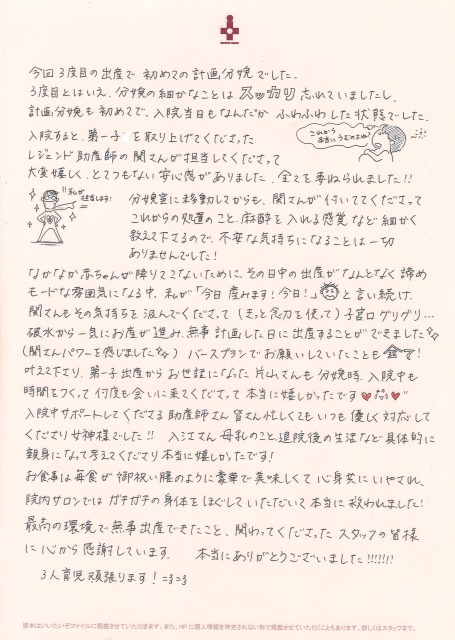 今回3度目の出産で初めての計画分娩でした。
3度目とはいえ、分娩の細かなことはスッカリ忘れていましたし、
計画分娩も初めてで、入院当日もなんだかふわふわした状態でした。
これから本当にうむのよね?
入院すると、第一子を取り上げてくださった
レジェンド助産師の関さんが担当してくださって
大変嬉しく、とてつもない安心感がありました。全てを委ねられました!!
私が担当します!
分娩室に移動してからも、関さんが付いてくださって
これからの処置のこと、麻酔を入れる感覚など細かく
教えて下さるので、不安な気持ちになることは一切
ありませんでした!
なかなか赤ちゃんが降りてこないために、その日中の出産がなんとなく諦め
モードな雰囲気になる中、私が「今日産みます!今日!」と言い続け、
関さんもその気持ちを汲んでくださって(きっと念力を使って)子宮口グリグリ…
破水から一気にお産が進み、無事計画した日に出産することができました
(関さんパワーを感じました)バースプランでお願いしていたことも全て!
叶えて下さり、第一子出産からお世話になった片山さんも分娩時、入院中も
時間をつくって何度も会いに来てくださって本当に嬉しかったです
入院中サポートしてくださる助産師さん皆さん忙しくてもいつも優しく対応して
くださり女神様でした!!入江さん母乳のこと、退院後の生活など具体的に
親身になって考えてくださり本当に嬉しかったです!
お食事は毎食が御祝い膳のように豪華で美味しくて心身共にいやされ、
院内サロンではガチガチの身体をほぐしていただいて本当に救われました!
最高の環境で無事出産できたこと、関わってくださったスタッフの皆様
に心から感謝しています。 本当にありがとうございました!!!!!!
3人育児頑張ります!ニコニコ
原本はいいたいぞファイルに掲載させていただきます。また、HPに個人情報を特定されない形で掲載させていただくこともあります。詳しくはスタッフまで。